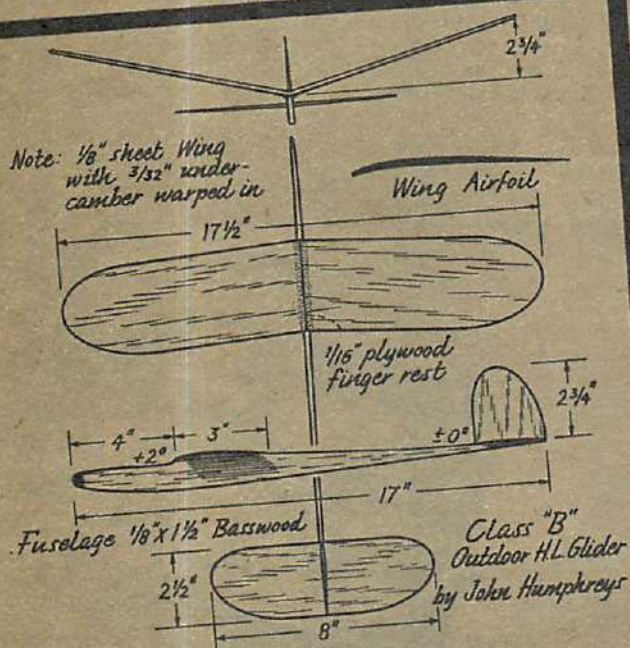 2 3/4"
Note: 1/8" sheet Wing
with 3/32" under-
camber warped in
Wing Airfoil
17 1/2"
1/16" plywood
finger rest
2 3/4"
4"
3"
+2°
±0°
17"
Fuselage 1/8" x 1 1/2" Basswood
Class "B"
Outdoor H.L. Glider
by John Humphreys
2 1/2"
8"